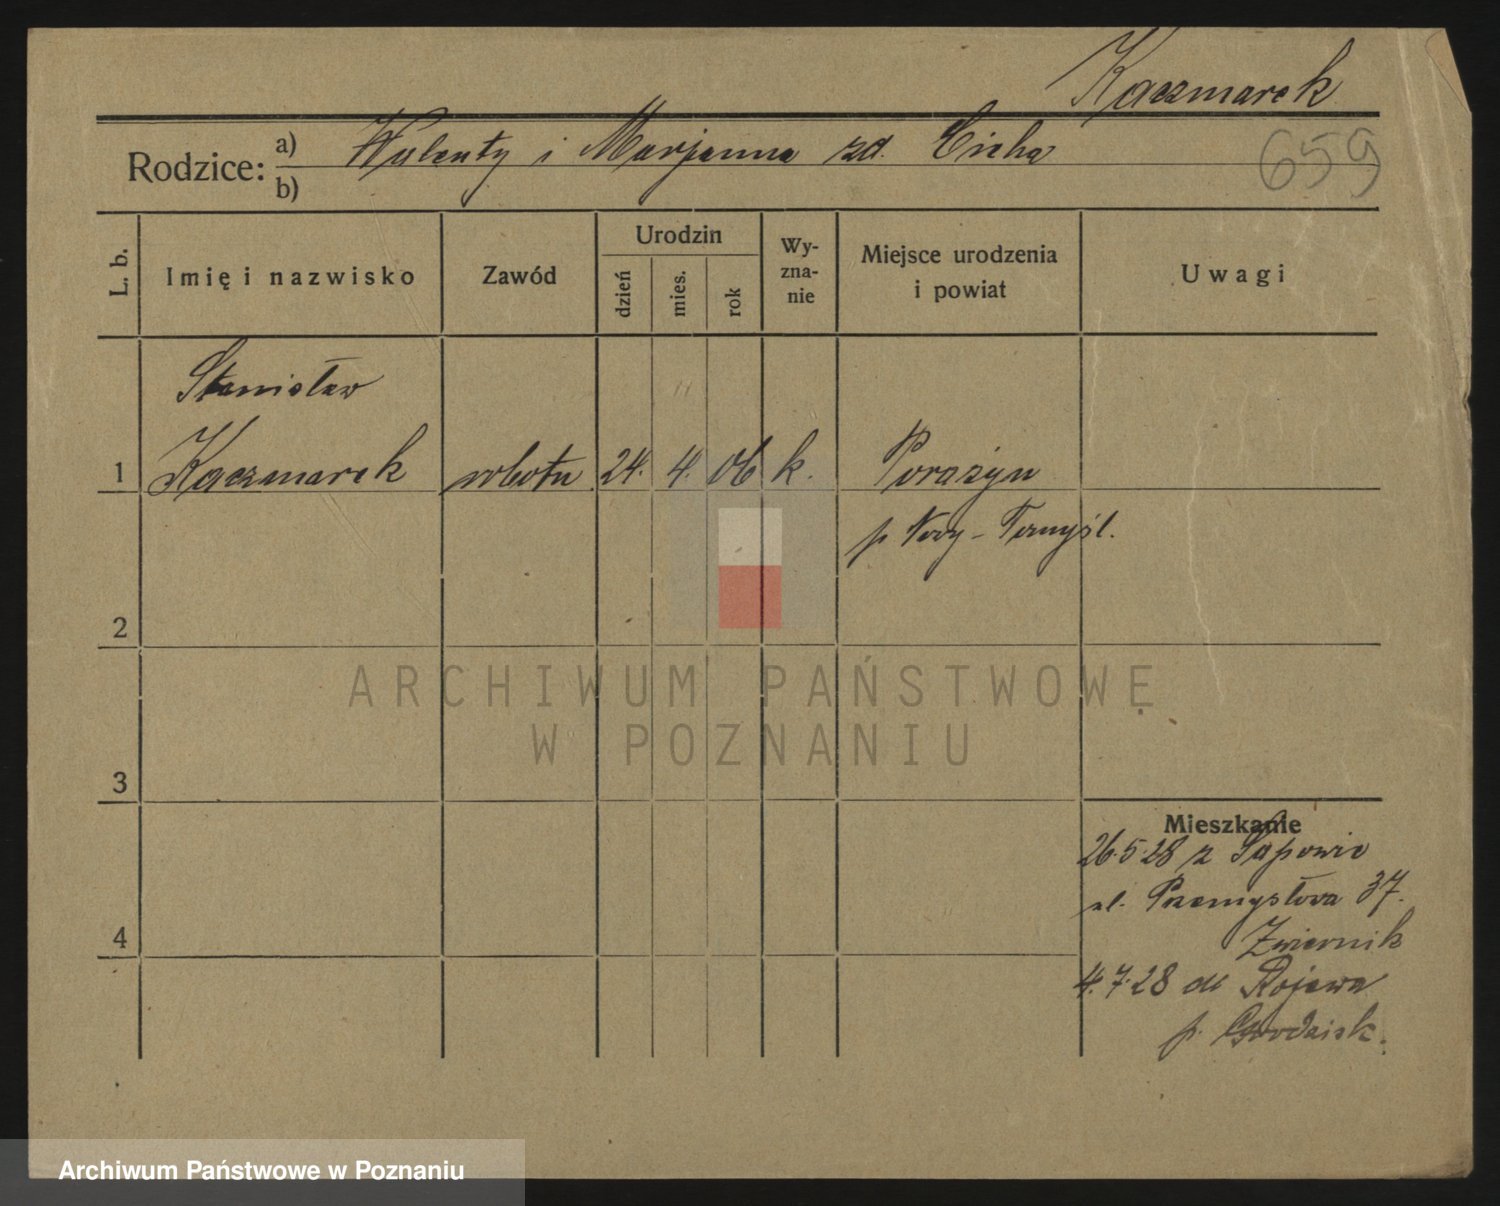 Kaczmarek
Rodzice:
a) Walenty i Marjanna zd. Cicha
b)
659
L. b.
Imię i nazwisko
Zawód
Urodzin
dzień
mies.
rok
Wy-
zna-
nie
Miejsce urodzenia
i powiat
Uwagi
Stanisław
1 Kaczmarek robotn 24. 4. 06 k. Porażyn
p Nowy-Tomyśl.
2
3
4
ARCHIWUM PAŃSTWOWE
W POZNANIU
Mieszkanie
26.5.28 z Sapowic
ul. Przemysłowa 37.
Zwiernik
4.7.28 do Rojewa
p.
Archiwum Państwowe w Poznaniu